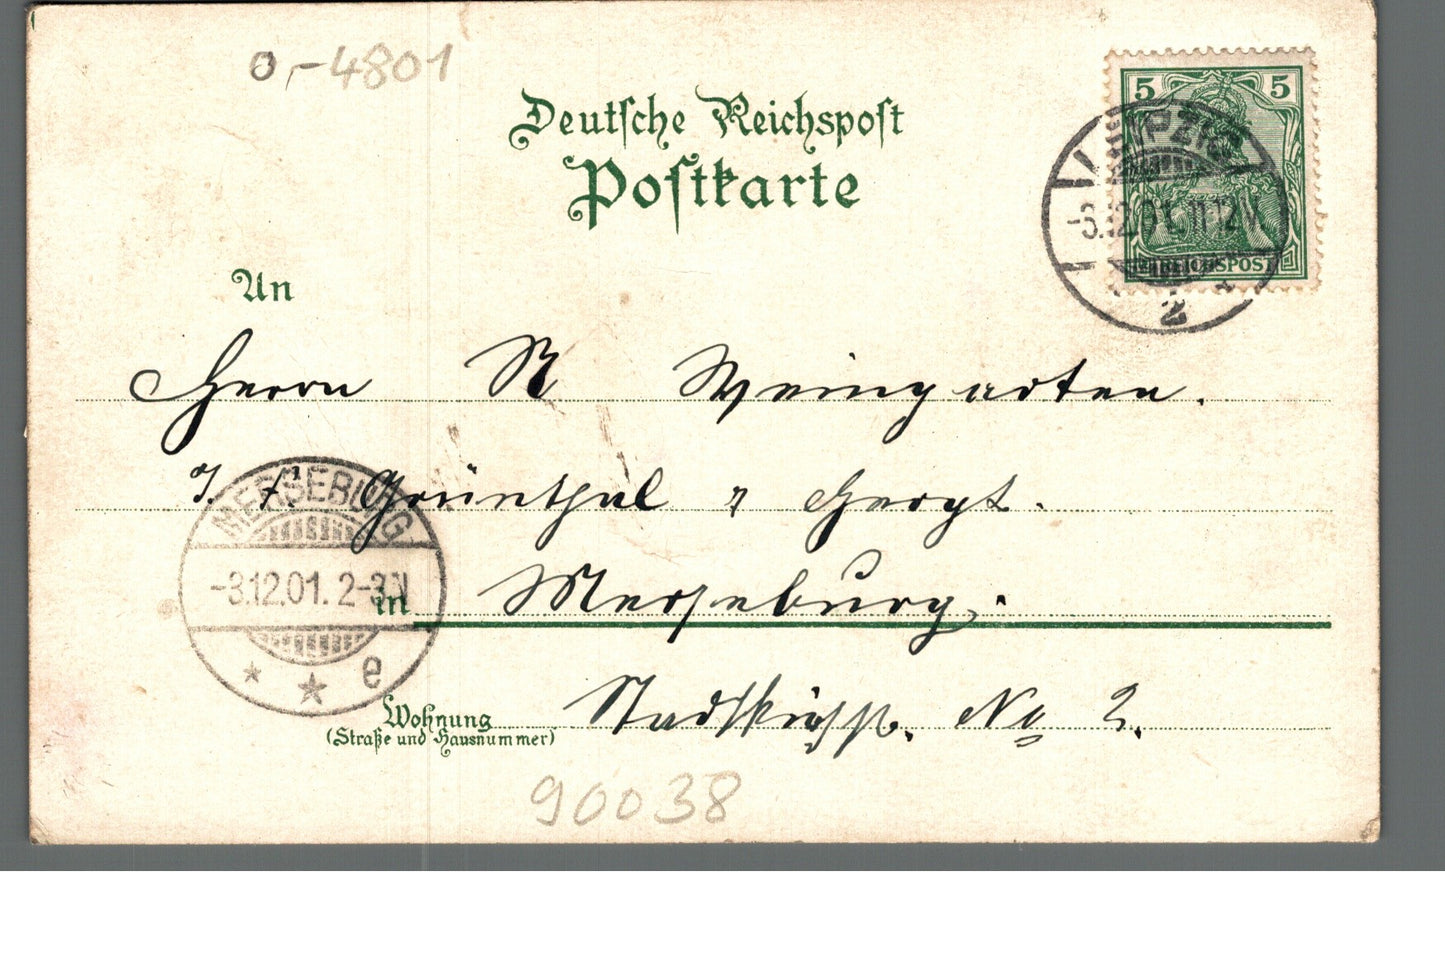 0,-4801
Deutsche Reichspost
Postkarte
5 5
REICHSPOST
LEIPZIG
-3.12.01. 11-12V
2
An
Herrn R Weingarten.
Grünthal
MERSEBURG
-3.12.01. 2-3N
e
in Merseburg.
Wohnung
(Straße und Hausnummer)
No 2.
90038